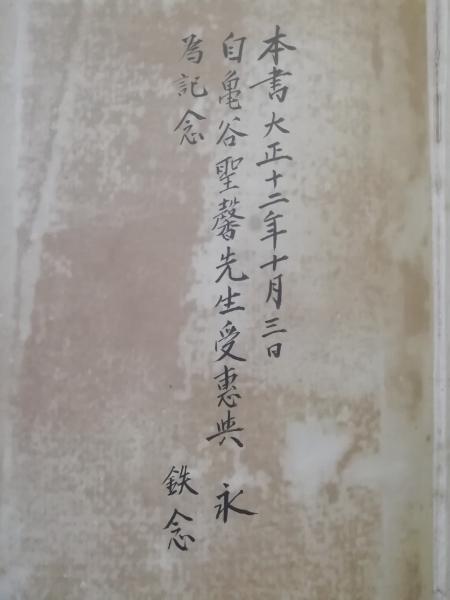 本書大正十二年十月三日
自亀谷聖馨先生受惠典 永
為記念
鉄念